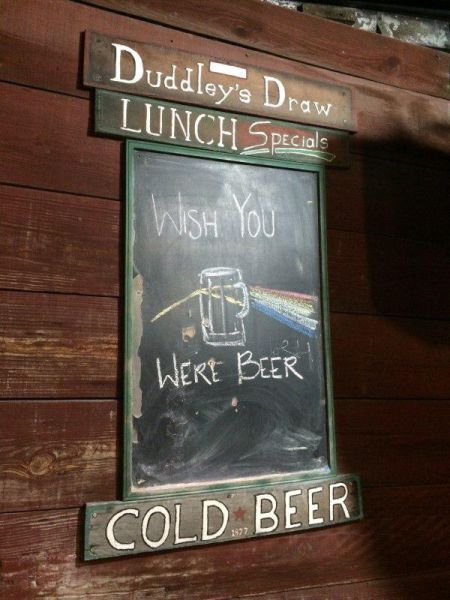 Duddley's Draw
LUNCH Specials
WISH YOU
WERE BEER
COLD BEER
1977